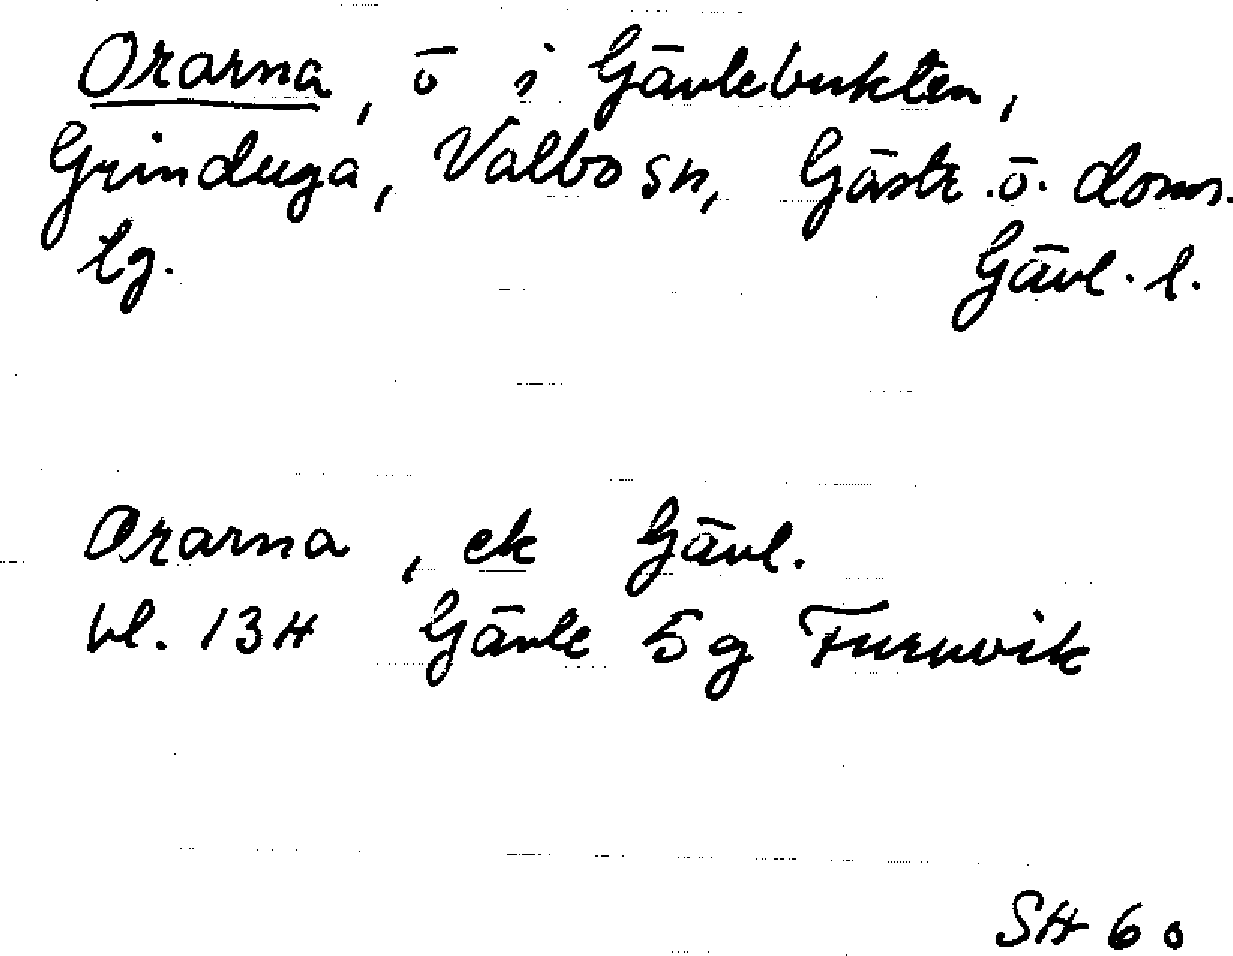 Orarna, ö i Gävlebukten,
Grinduga, Valbo sn, Gästr. ö. doms.
tg. Gävl. l.
Orarna, ek Gävl.
bl. 13H Gävle 5g Furuvik
SH 60